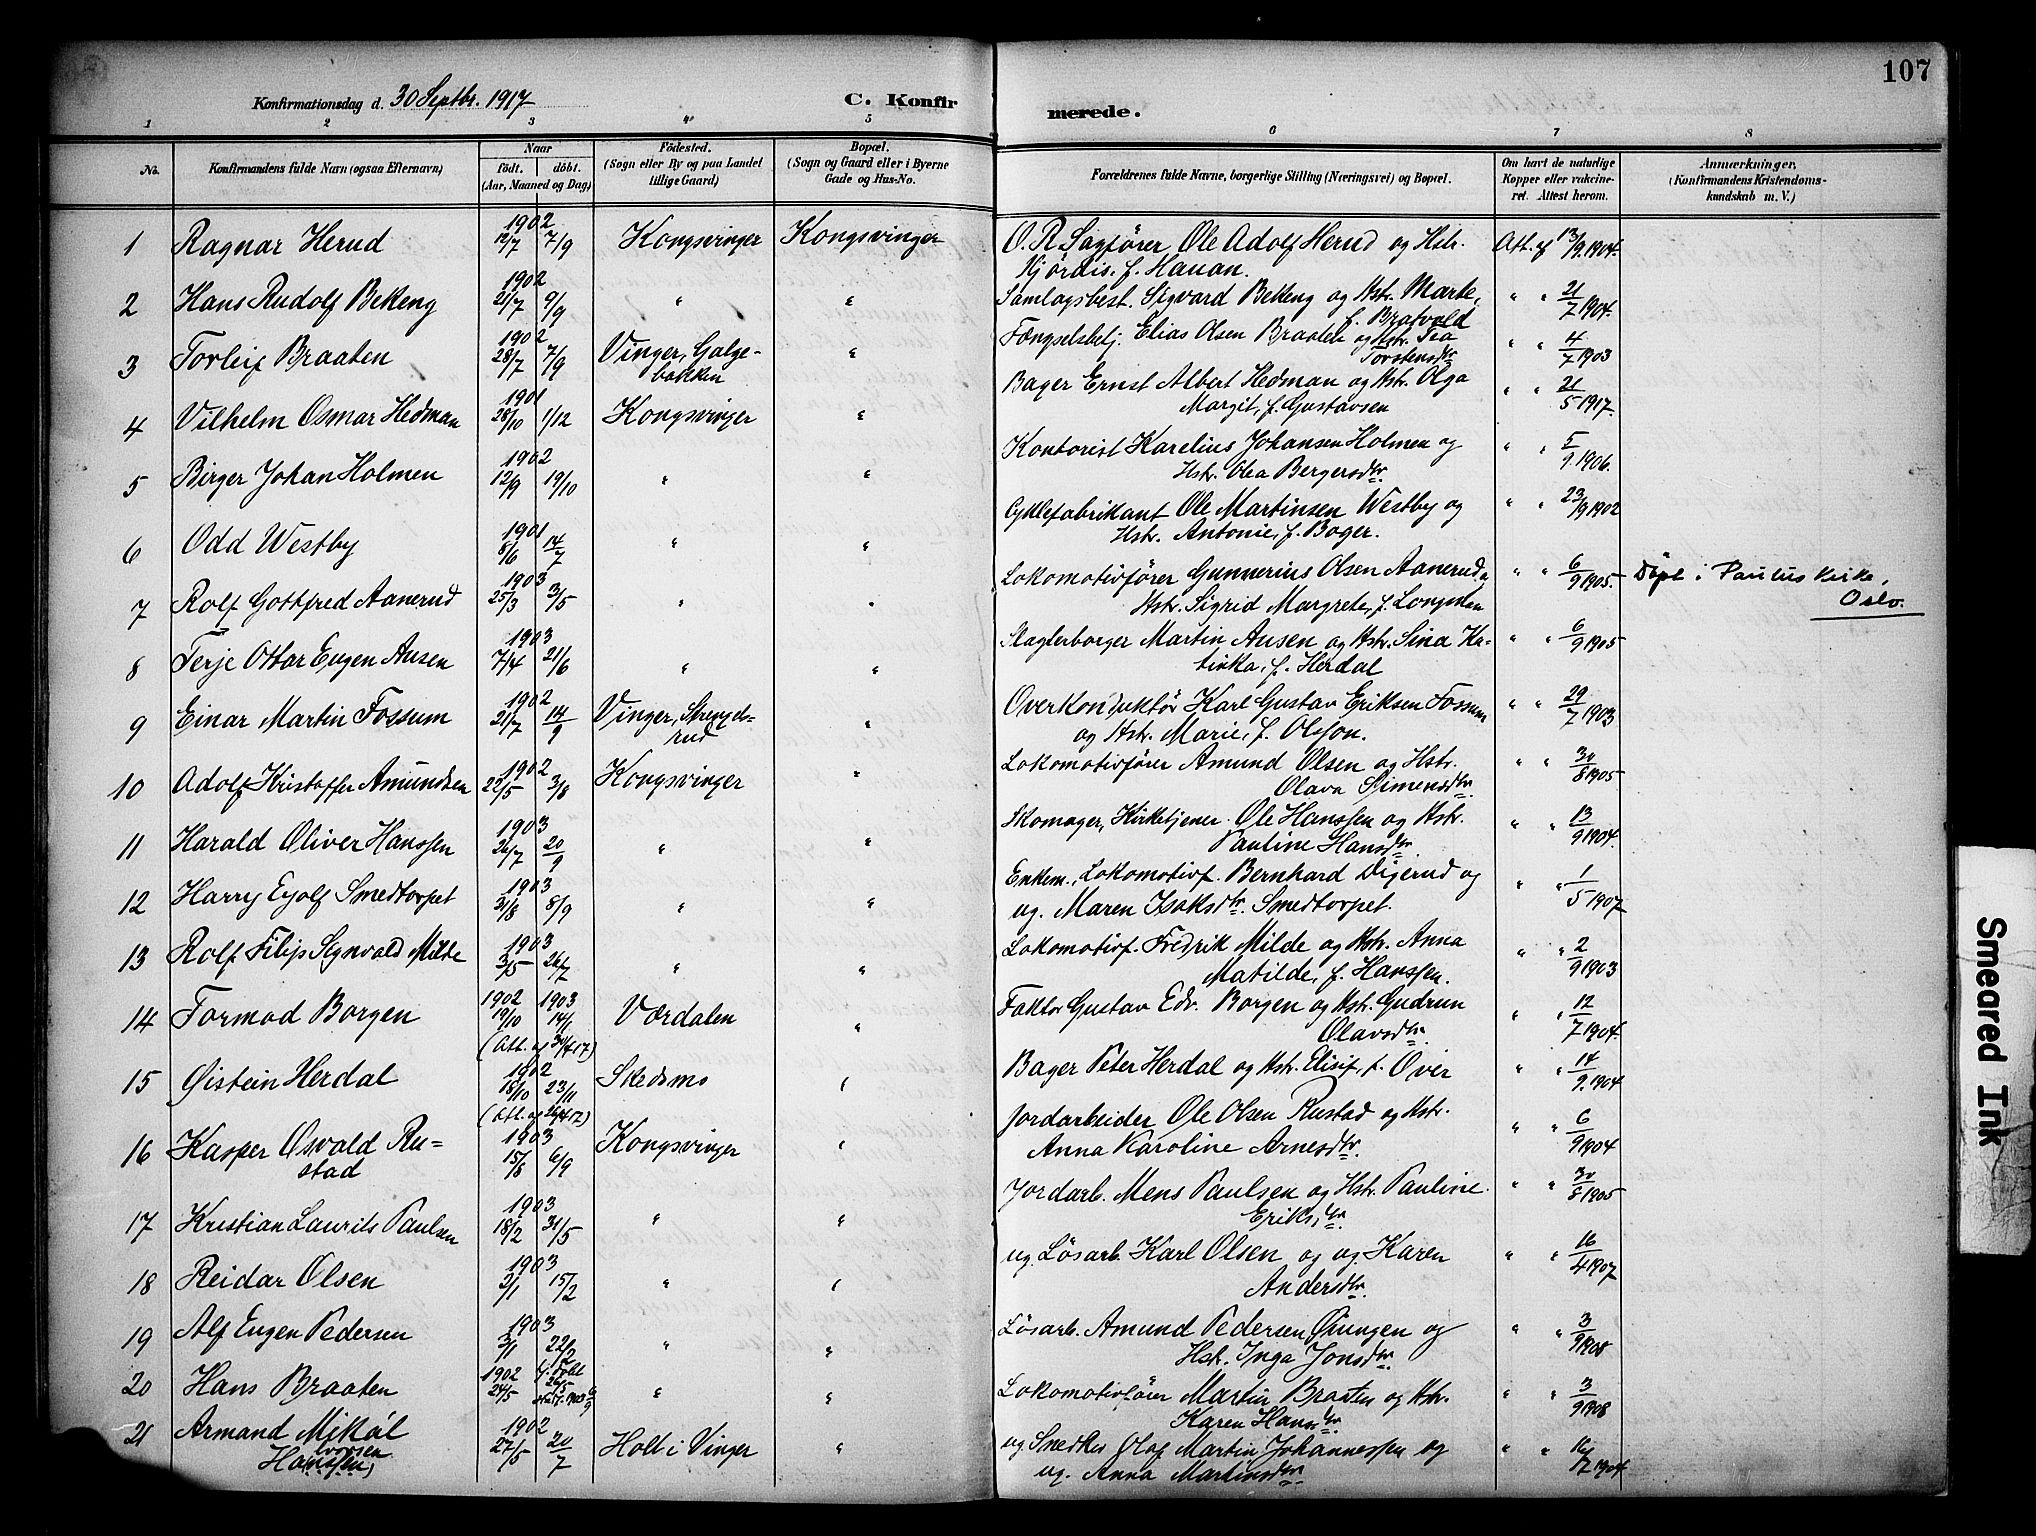 107
Konfirmationsdag d. 30 Septbr. 1917 C. Konfirmerede.
1 2 3 4 5 6 7 8
No. Konfirmandens fulde Navn (ogsaa Efternavn) Naar født. døbt. (Aar, Maaned og Dag) Fødested. (Sogn eller By og paa Landet tillige Gaard) Bopæl. (Sogn og Gaard eller i Byerne Gade og Hus-No. Forældrenes fulde Navne, borgerlige Stilling (Næringsvei) og Bopæl. Om havt de naturlige Kopper eller vakcineret. Attest herom. Anmærkninger, (Konfirmandens Kristendomskundskab m. V.)
1 Ragnar Herud 1902 12/7 7/9 Kongsvinger Kongsvinger O. R. Sagfører Ole Adolf Herud og Hstr. Att. af 13/9 1904.
Hjördis, f. Hauan.
2 Hans Rudolf Bekeng 1902 21/7 9/9 " " Samlagsbest. Sigvard Bekeng og Hstr. Marte, " " 21/7 1904.
f. Bratvold
3 Torleif Braaten 1902 28/7 7/9 Vinger, Galgebakken " Fængselsbetj. Elias Olsen Braaten og Hstr. Tea " " 4/7 1903
Torstensdtr
4 Vilhelm Osmar Hedman 1901 28/10 1/12 Kongsvinger " Bager Ernst Albert Hedman og Hstr. Olga " " 21/5 1917.
Margit, f. Gustavsen
5 Birger Johan Holmen 1902 12/9 19/10 " " Kontorist Karelius Johansen Holmen og " " 5/9 1906.
Hstr. Olea Bergersdtr.
6 Odd Westby 1901 8/6 14/7 " " Cyklefabrikant Ole Martinsen Westby og " " 23/9 1902
Hstr. Antonie, f. Boger.
7 Rolf Gottfred Aanerud 1903 25/3 3/5 " " Lokomotivfører Gunnerius Olsen Aanerud og " " 6/9 1905. Døpt i Paulus kirke,
Hstr. Sigrid Margrete, f. Longsten Oslo.
8 Terje Ottar Eugen Ausen 1903 7/4 21/6 " " Slagterborger Martin Ausen og Hstr. Sina Ka- " " 6/9 1905
tinka, f. Herdal
9 Einar Martin Fossum 1902 21/7 14/9 Vinger, Strengelsrud " Overkonduktör Karl Gustav Eriksen Fossum " " 29/7 1903
og Hstr. Marie, f. Olsson.
10 Adolf Kristoffer Amundsen 1902 22/5 3/8 Kongsvinger " Lokomotivfører Amund Olsen og Hstr. " " 30/8 1905
Olava Simensdtr
11 Harald Oliver Hanssen 1903 26/7 20/9 " " Skomager, Kirketjener Ole Hanssen og Hstr. " " 13/9 1904.
Pauline Hansdtr
12 Harry Eyolf Smedtorpet 1903 31/8 8/9 " " Enkem., Lokomotivf. Bernhard Digerud og " " 1/5 1907
ug. Maren Isaksdtr. Smedtorpet.
13 Rolf Filip Synvald Milde 1903 3/5 26/7 " " Lokomotivf. Fredrik Milde og Hstr. Anna " " 2/9 1903
Matilde, f. Hanssen.
14 Tormod Borgen 1902 19/10 1903 14/1 Værdalen " Faktor Gustav Edv. Borgen og Hstr. Gudrun " " 12/7 1904.
(Att. af 30/4 17) Olavsdtr.
15 Øistein Herdal 1902 18/10 23/11 Skedsmo " Bager Peter Herdal og Hstr. Elisif, f. Over " " 14/9 1904
(Att. af 26/4 17)
16 Kasper Osvald Ru- 1903 15/8 6/9 Kongsvinger " Jordarbeider Ole Olsen Rustad og Hstr. " " 6/9 1904
stad Anna Karoline Arnesdtr.
17 Kristian Laurits Paulsen 1903 18/2 31/5 " " Jordarb. Mens Paulsen og Hstr. Pauline " " 30/8 1905
Eriksdtr.
18 Reidar Olsen 1903 2/1 15/2 " " ug. Løsarb. Karl Olsen og ug. Karen " " 16/4 1907
Andersdtr.
19 Alf Eugen Pedersen 1903 3/1 22/2 " " Løsarb. Amund Pedersen Öiungen og " " 3/9 1908
Hstr. Inga Jonsdtr.
20 Hans Braaten 1902 24/5 " " Lokomotivfører Martin Braaten og Hstr. " " 3/9 1908
Karen Hansdtr.
21 Armand Mikal 1902 27/5 20/7 Holt i Vinger " ug Snedker Olof Martin Johannessen og " " 1904
Hanssen ug. Anna Martinsdtr
Smeared Ink